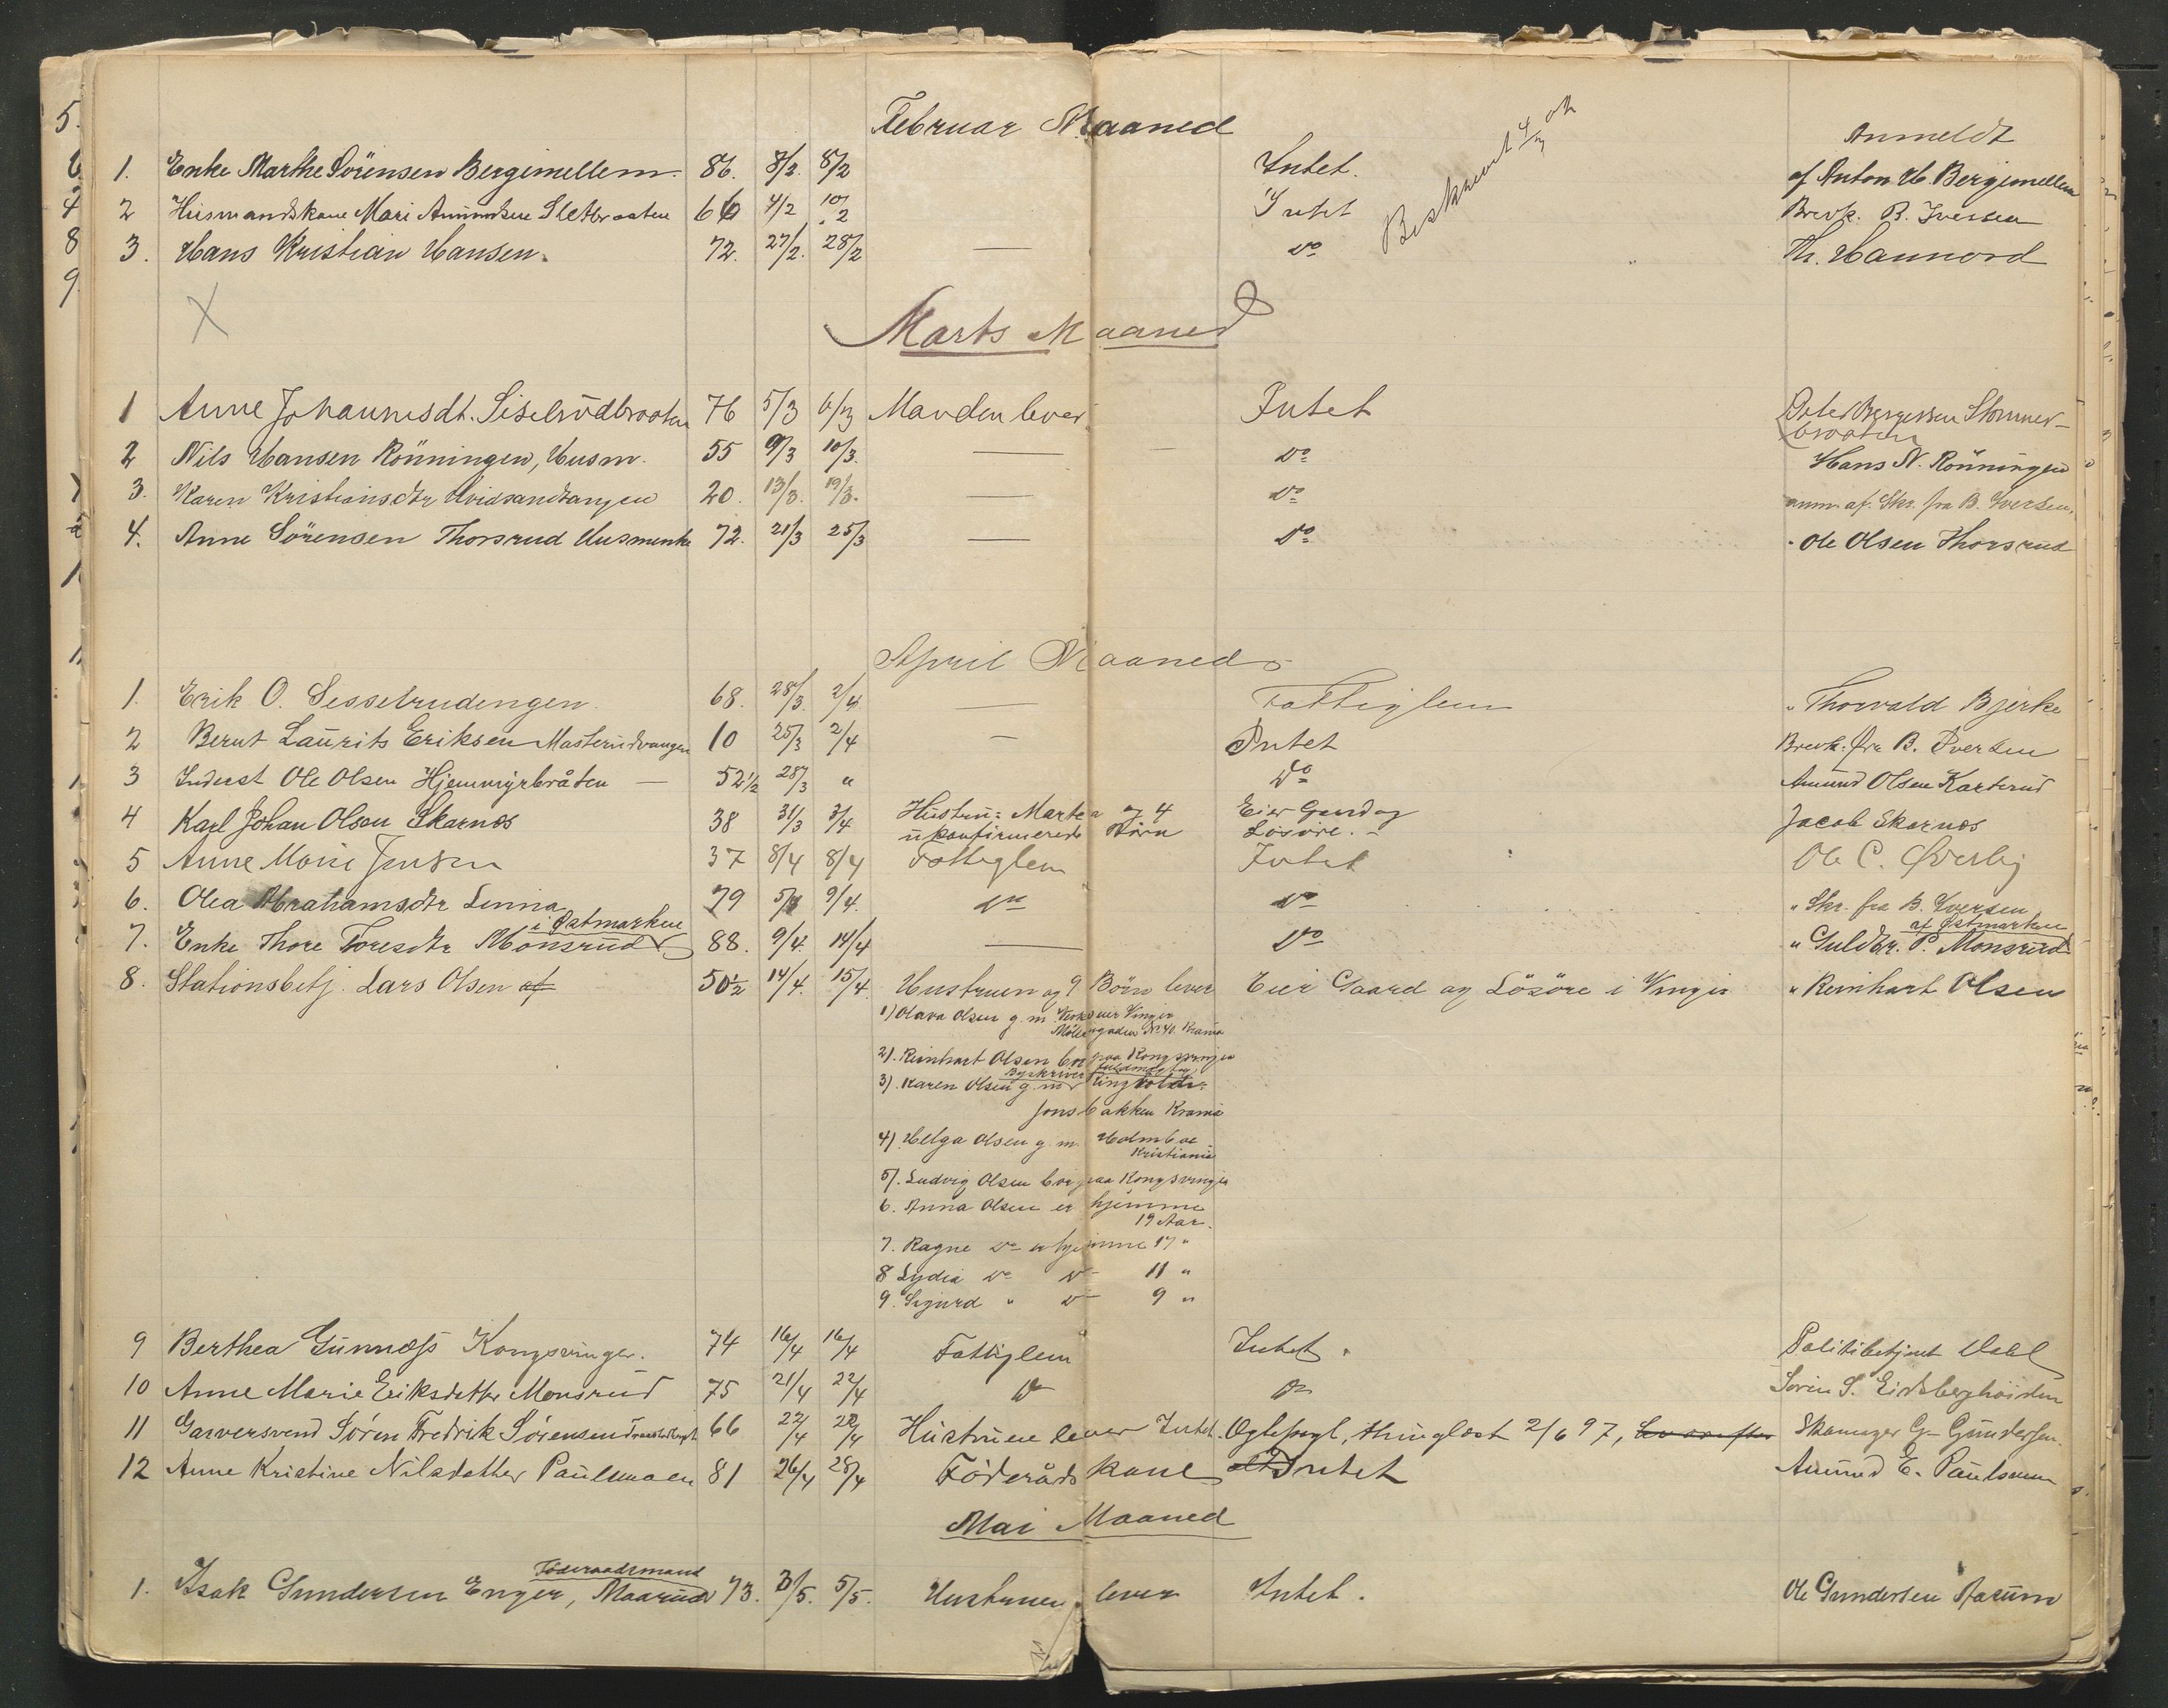 Februar Maaned
Anmeldt
1. Enke Marthe Sörensen Bergimellem. 86. 8/2. 8/2 Intet. af Anton H. Bergimellem
Beskrevet 4/3 og
2 Husmandskone Mari Amundsen Sletbraaten 66 4/2 10/2 Intet Brevk. B. Iversen
3. Hans Kristian Hansen. 72. 27/2. 28/2 — do Th. Hannord
Marts Maaned
1 Anne Johannesdt. Siselrudbraaten 76 5/3 6/3 Manden lever Intet Peter Børgersen Stommer-
braaten
2 Nils Hansen Rönningen, Husm. 55 9/3 10/3. — do Hans N. Rönningen
3. Karen Kristiansdtr Hvidsandtangen 20. 13/3. 19/3. — do anm. af. Skr. fra B. Iversen.
4. Anne Sörensen Thorsrud Husmenke 72. 21/3 25/3 — do Ole Olsen Thorsrud
April Maaned
1. Erik O. Sesselrudengen. 68. 28/3. 2/4. — Fattiglem " Thorvald Bjerke
2 Bernt Laurits Eriksen Masterudvangen 10 25/3 2/4 — Intet Brevk. fra B. Iversen
3 Inderst Ole Olsen Hjemmyrbråten — 52 1/2 28/3 " do Amund Olsen Karterud
4 Karl Johan Olsen Skarnæs 38 31/3 3/4 Hustru: Marthe og 4 Eier Gaard og Jacob Skarnæs
ukonfirmerede Börn Lösöre. -
5 Anne Marie Jensen 37 8/4 8/4 Fattiglem Intet Ole C. Øverby
6. Olea Abrahamsdtr Linna 79 5/4 9/4. do do " Skr. fra B. Iversen
i Østmarken af Østmarken
7. Enke Thore Toresdtr Monsrud 88. 9/4. 14/4 — do " Guldbr. P. Monsrud
8. Stationsbetj. Lars Olsen af 50 1/2 14/4. 15/4. Hustruen og 9 Börn lever Eier Gaard og Lösöre i Vinger " Reinhart Olsen
1) Olava Olsen g. m. Vinger
Möllergaden No 40. Krania
2). Reinhart Olsen bor paa Kongsvinger
Byskriverfuldmægtig
3). Karen Olsen g. m. Ringvold i
Jonsbakken Krania
4) Helga Olsen g. m. Holmboe
Kristiania
5). Ludvig Olsen bor paa Kongsvinger
6. Anna Olsen er hjemme
19 Aar.
7. Ragne do er hjemme 17 "
8 Lydia do do 11 "
9. Sigurd " do 9 "
9 Berthea Gunnæss Kongsvinger. 74 16/4 16/4 Fattiglem Intet. Politibetjent Dahl
10 Anne Marie Eriksdatter Monsrud 75 21/4 22/4 do do Sörine S. Eidsberghöiden
11 Garversvend Sören Fredrik Sörensen 66 22/4 28/4 Hustruen lever Intet. Ægtepagt, thinglæst 2/6 97, Skomager G. Gundersen.
12 Anne Kristine Nilsdatter Paulsmoen 81 26/4 28/4 Föderåds kone Intet Amund E. Paulsmoen
Mai Maaned
Föderaadsmand
1. Isak Gundersen Enger, Maarud 73. 3/5. 5/5. Hustruen lever Intet. Ole Gundersen Aarum